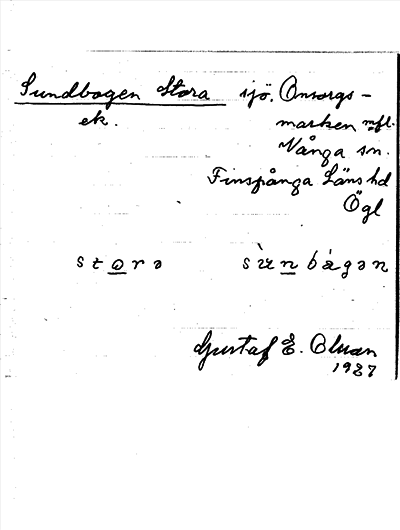 Sundbogen Stora sjö. Onsorgs-
ek. marken mfl.
Vånga sn.
Finspånga Läns hd
Ögl
stɷrə sùn bágən
Gustaf E.
1927